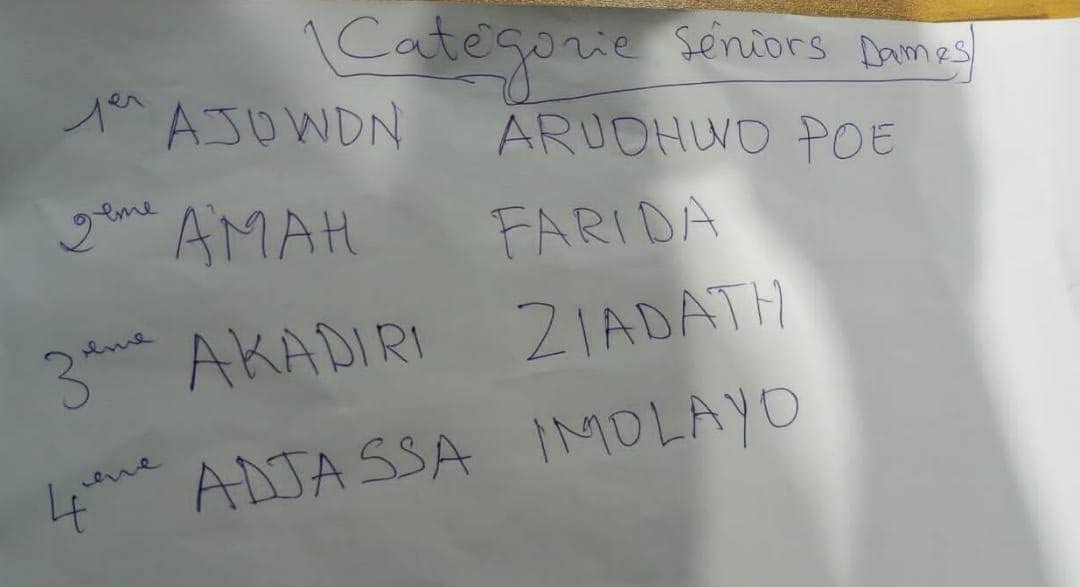 Catégorie Séniors Dames
1er AJUWON ARUOHUVO POE
2eme AMAH FARIDA
3eme AKADIRI ZIADATH
4eme ADJASSA IMOLAYO